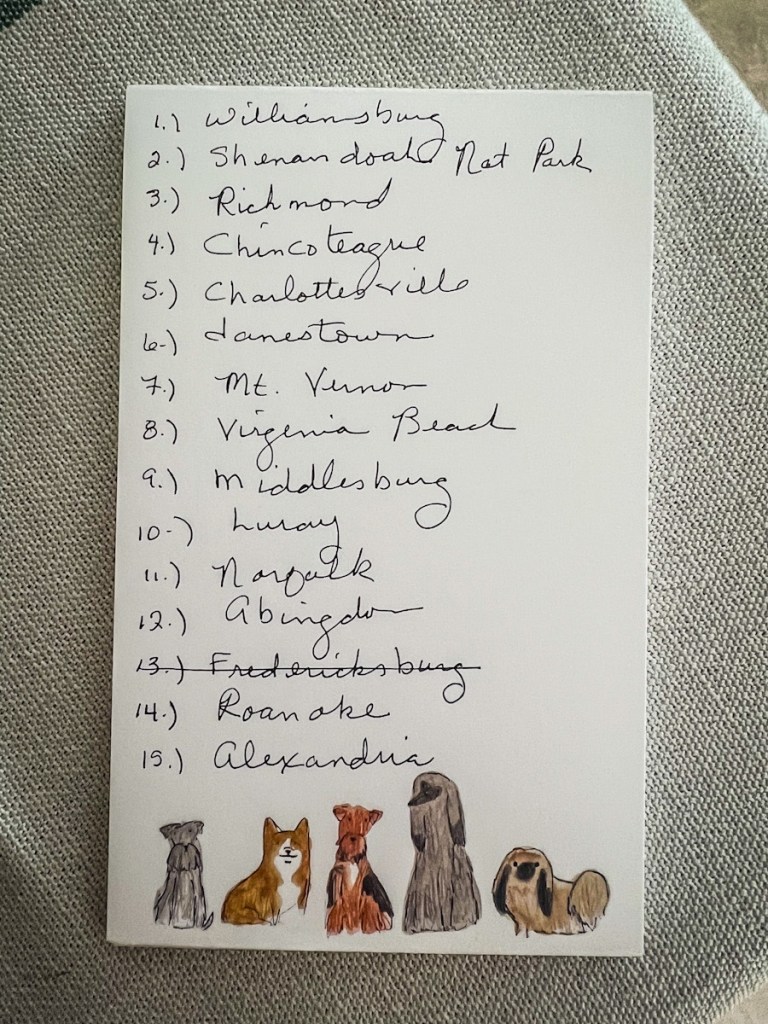 1.) Williamsburg
2.) Shenandoah Nat Park
3.) Richmond
4.) Chincoteague
5.) Charlottesville
6.) Jamestown
7.) Mt. Vernon
8.) Virginia Beach
9.) Middlesburg
10.) Luray
11.) Norfolk
12.) Abingdon
13.) Fredericksburg
14.) Roanoke
15.) Alexandria